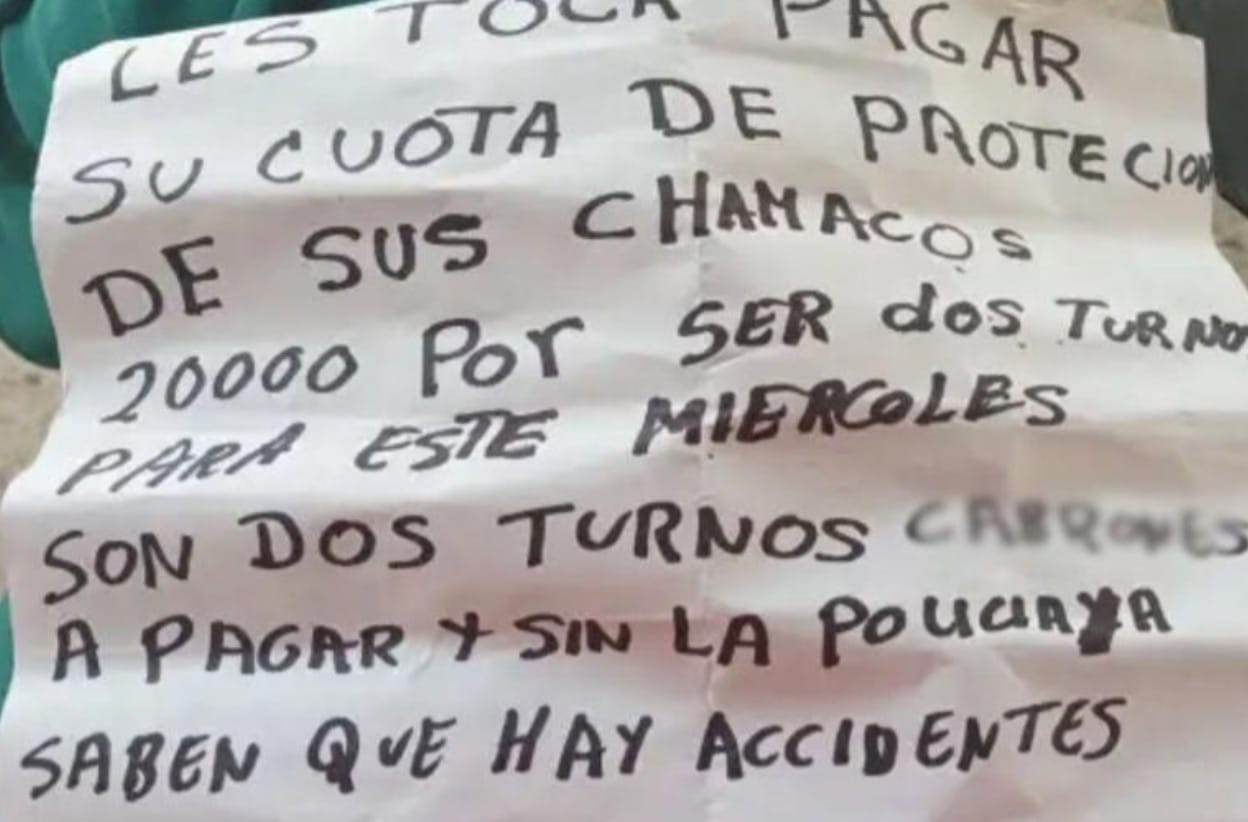 LES TOCA PAGAR
SU CUOTA DE PROTECION
DE SUS CHAMACOS
20000 POr SER dos TURNO
PARA ESTE MIERCOLES
SON DOS TURNOS CABRONES
A PAGAR Y SIN LA POLICIA YA
SABEN QUE HAY ACCIDENTES